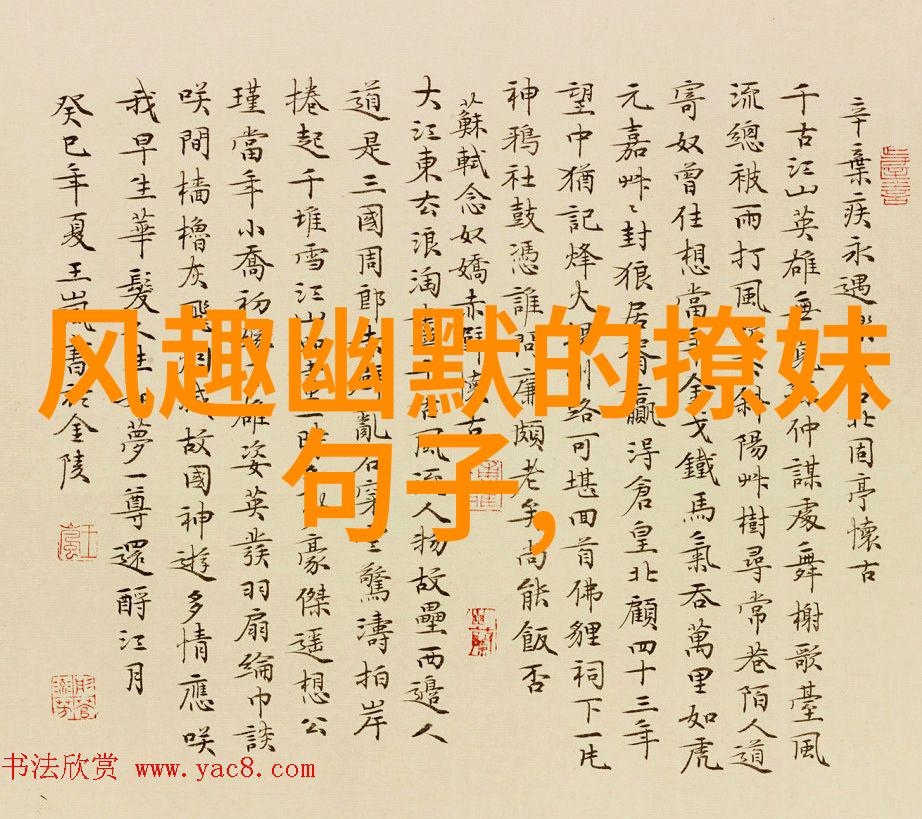 风趣幽默的撩妹
句子,
辛棄疾永遇北固亭懷古
千古江山英雄無覓仲謀處舞榭歌臺風
流總被雨打風斜陽艸樹尋常巷陌人道
寄奴曾住想當年金戈鐵馬氣吞萬里如虎
元嘉艸〻封狼居胥贏得倉皇北顧四十三年
望中猶記烽火揚州路可堪回首佛貍祠下一片
神鴉社鼓憑誰問廉頗老矣尚能飯否
蘇軾念奴嬌赤壁懷古
大江東去浪淘盡千古風流人物故壘西邊人
道是三國周郎赤壁亂石穿空驚濤拍岸
捲起千堆雪江山如畫一時豪傑遙想公
瑾當年小喬初嫁雄姿英發羽扇綸巾談
咲間檣櫓灰飛煙滅故國神遊多情應咲
我早生華髮人生如夢一尊還酹江月
癸巳年夏王嵐書於金陵
书法欣赏 www.yac8.com